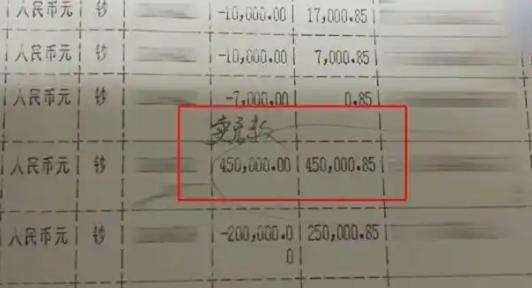 人民币元 钞 -10,000.00 17,000.85
人民币元 钞 -10,000.00 7,000.85
人民币元 钞 -7,000.00 0.85
卖房款
人民币元 钞 450,000.00 450,000.85
人民币元 钞 -200,000.0 250,000.85
0